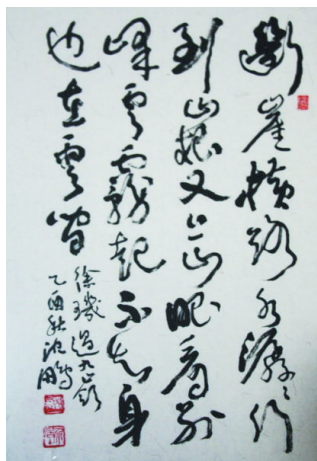 斷崖橫路水潺々行
到山根又上山眼看別
峰雲霧起不知身
也在雲間
徐璣過九嶺
乙酉秋沈鵬